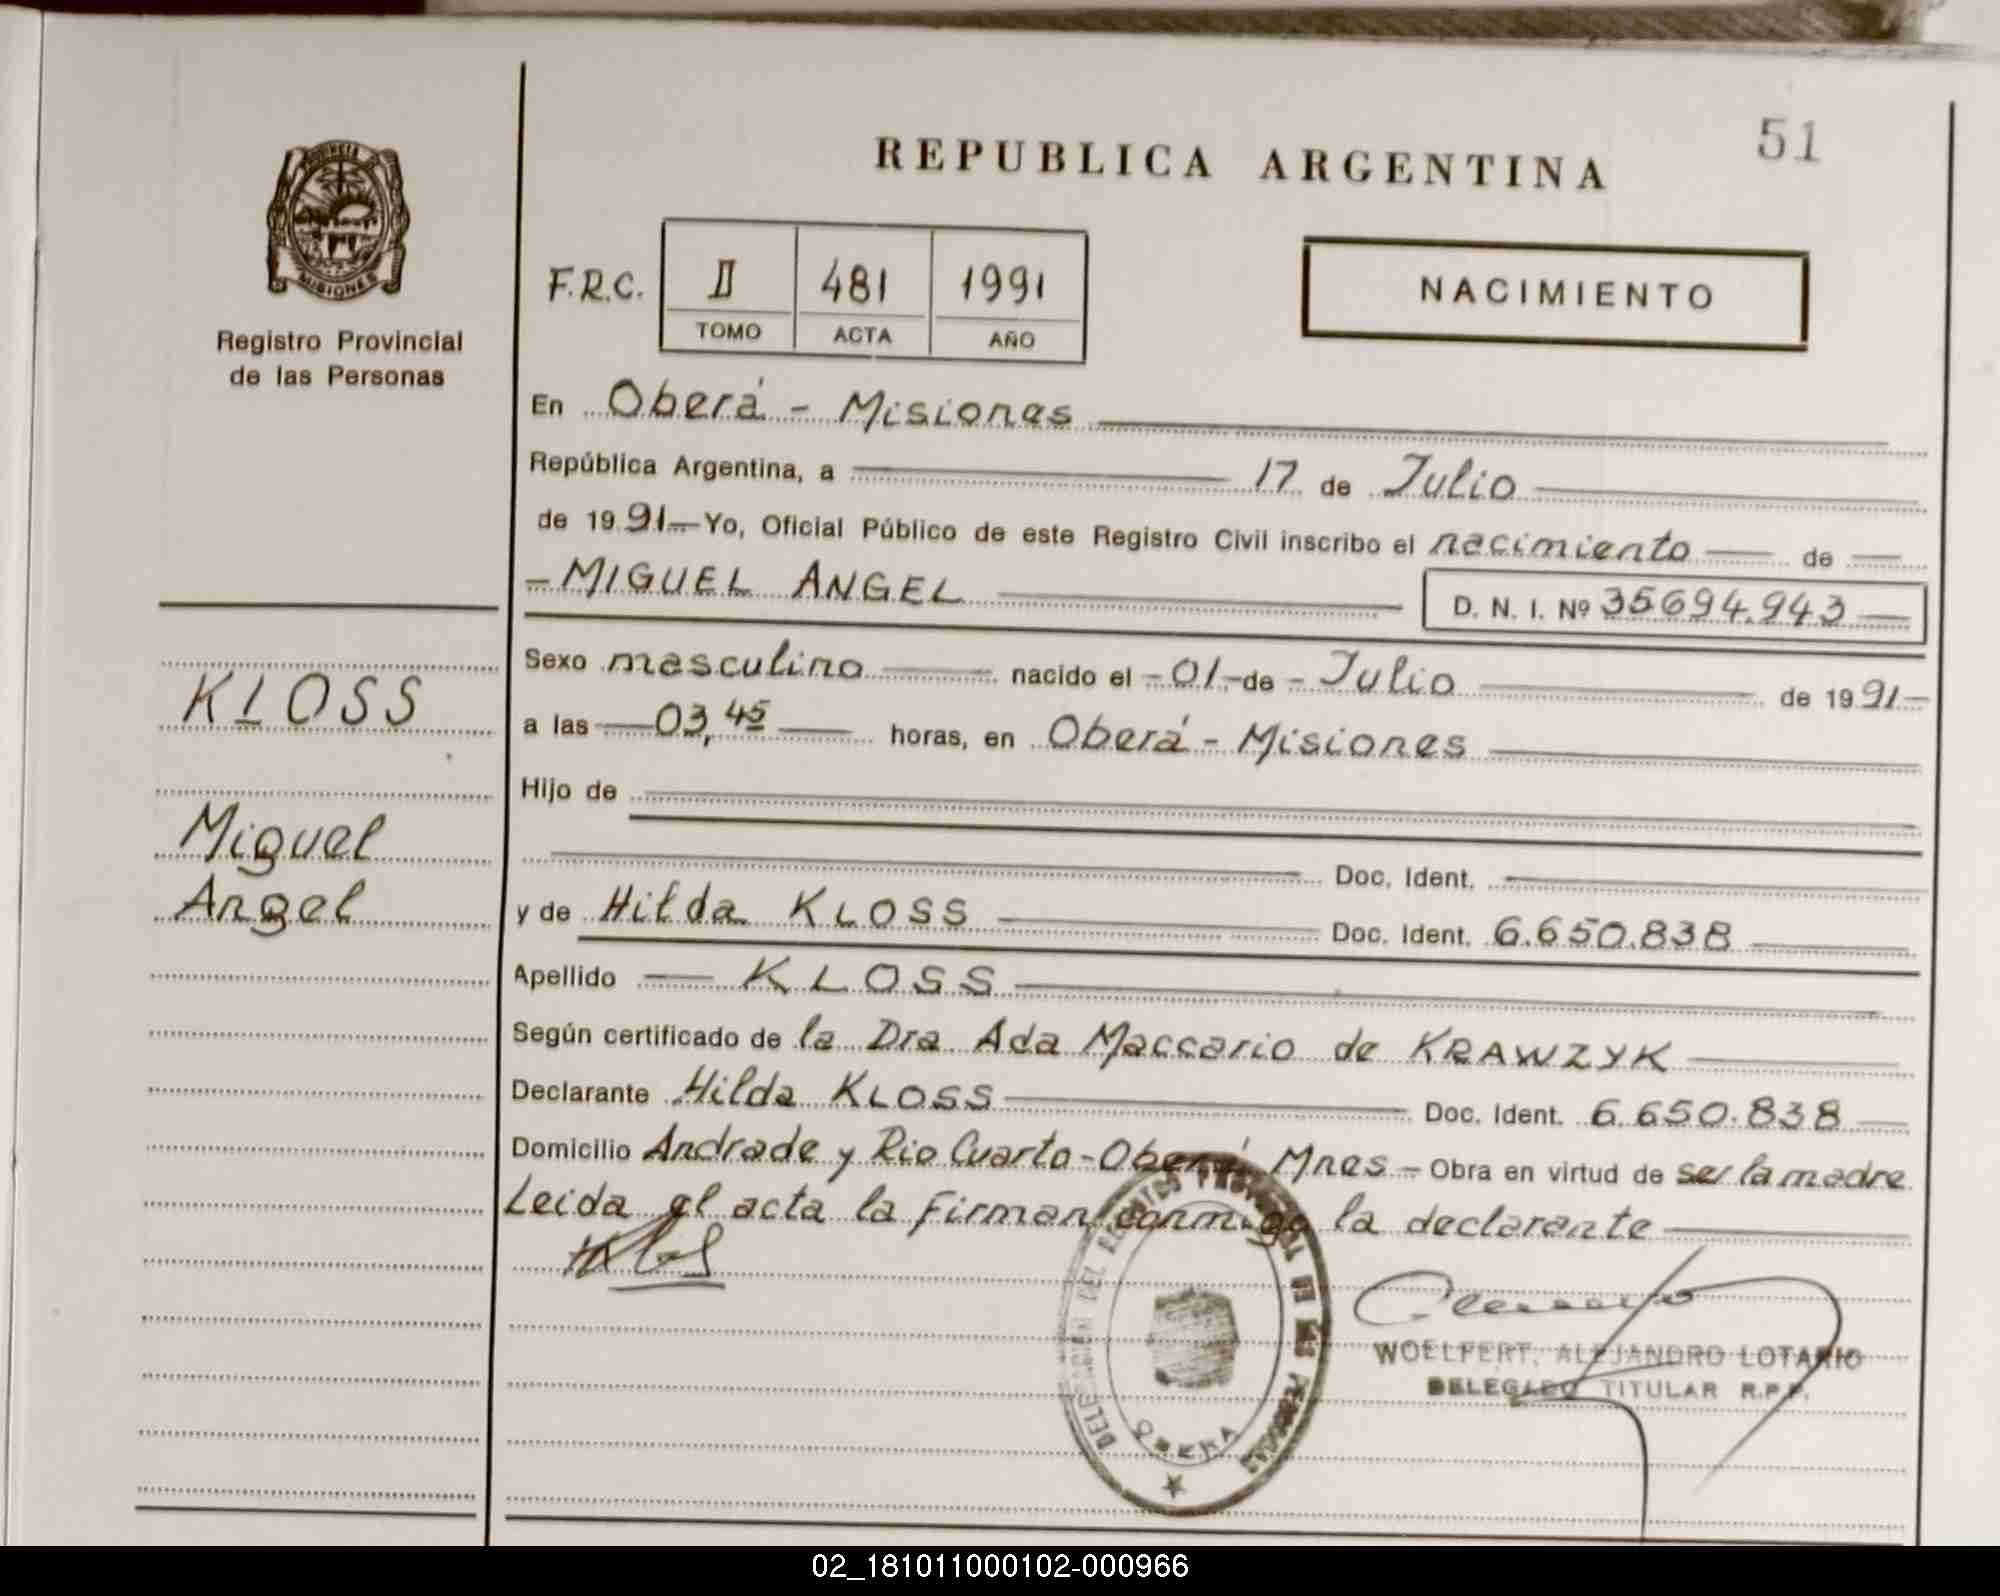 51
REPUBLICA ARGENTINA
PROVINCIA
MISIONES
Registro Provincial
de las Personas
F.R.C. II 481 1991
TOMO ACTA AÑO
NACIMIENTO
En Oberá - Misiones
República Argentina, a 17 de Julio
de 1991 Yo, Oficial Público de este Registro Civil inscribo el nacimiento de
MIGUEL ANGEL D. N. I. Nº 35694.943
Sexo masculino nacido el 01 de Julio de 1991
a las 03,45 horas, en Oberá - Misiones
Hijo de
Doc. Ident.
y de Hilda KLOSS Doc. Ident. 6.650.838
Apellido KLOSS
Según certificado de la Dra Ada Maccario de KRAWZYK
Declarante Hilda KLOSS Doc. Ident. 6.650.838
Domicilio Andrade y Rio Cuarto - Oberá Mnes - Obra en virtud de ser la madre
Leida el acta la Firman conmigo la declarante
KLOSS
Miguel
Angel
DELEGACION DEL REGISTRO PROVINCIAL DE LAS PERSONAS
OBERA
WOELFERT, ALEJANDRO LOTARIO
DELEGADO TITULAR R.P.P.
02_181011000102-000966